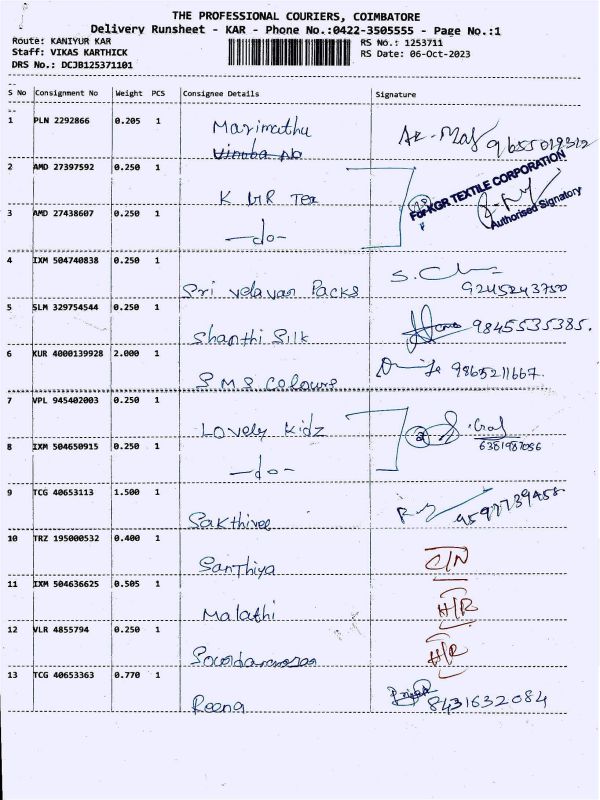 THE PROFESSIONAL COURIERS, COIMBATORE
Delivery Runsheet - KAR - Phone No.:0422-3505555 - Page No.:1
Route: KANIYUR KAR
Staff: VIKAS KARTHICK
DRS No.: DCJB125371101
RS No.: 1253711
RS Date: 06-Oct-2023
S No Consignment No Weight PCS Consignee Details Signature
1 PLN 2292866 0.205 1 Marimuthu
Vinoba
2 AMD 27397592 0.250 1 K GR Tex
For KGR TEXTILE CORPORATION
Authorised Signatory
3 AMD 27438607 0.250 1 -do-
4 IXM 504740838 0.250 1 Sri velavan Packs 9245243750
5 SLM 329754544 0.250 1 Shanthi Silk 9845535385.
6 KUR 4000139928 2.000 1 S M S Colours 9865211667.
7 VPL 945402003 0.250 1 Lovely Kidz
8 IXM 504650915 0.250 1 -do- 6381987056
9 TCG 40653113 1.500 1 Sakthivel 9597739458
10 TRZ 195000532 0.400 1 Santhiya C/N
11 IXM 504636625 0.505 1 Malathi H/R
12 VLR 4855794 0.250 1 H/R
13 TCG 40653363 0.770 1 Reena 8431632084